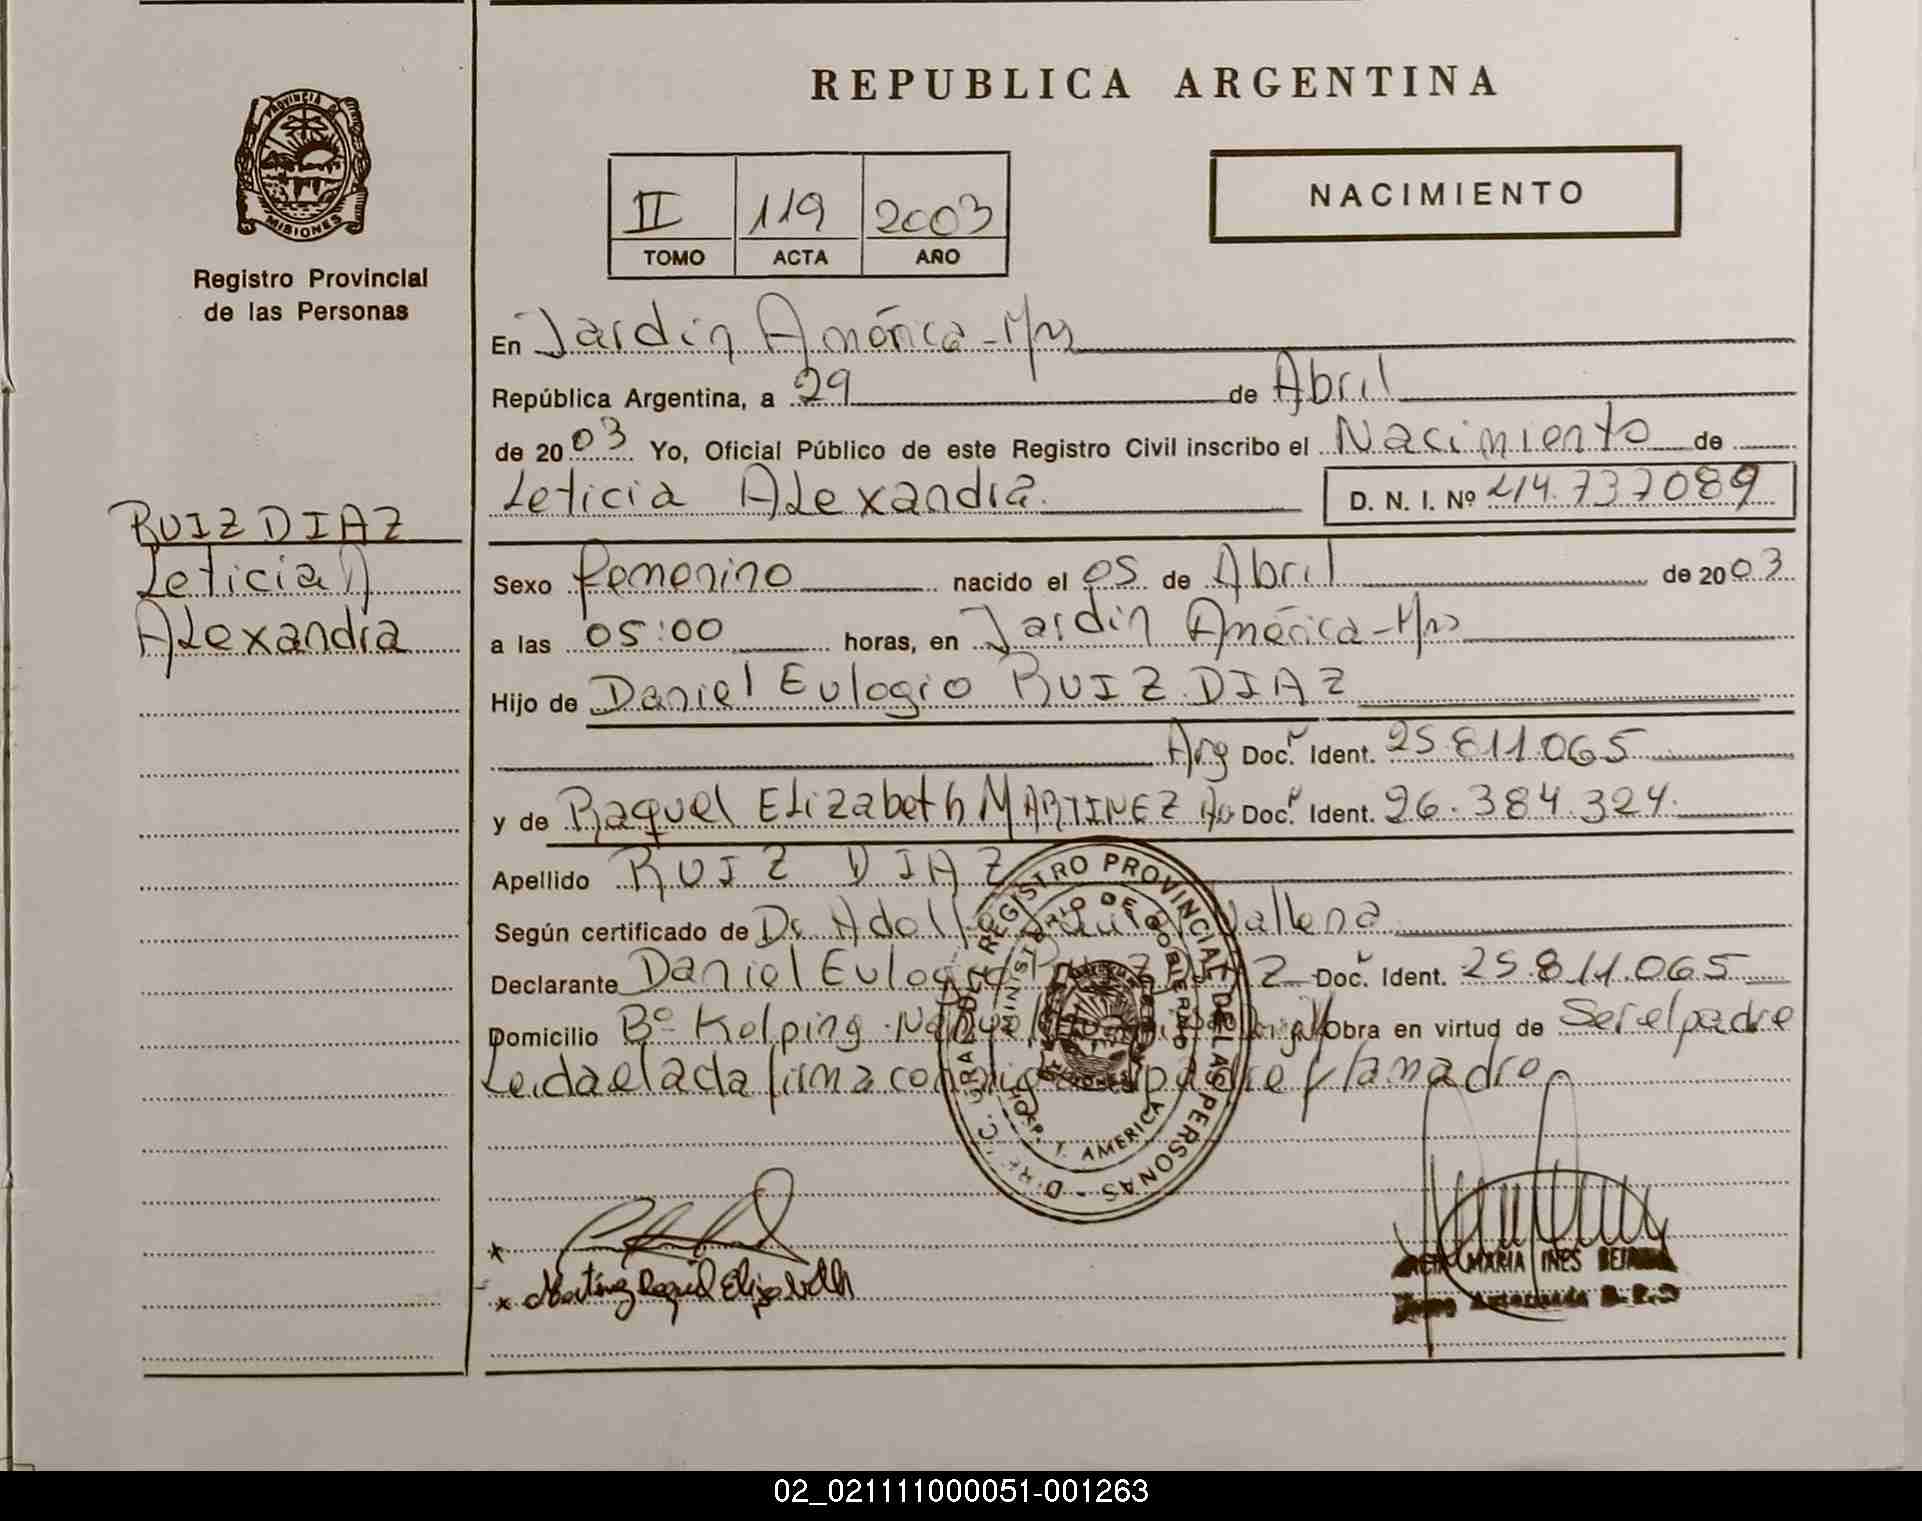 REPUBLICA ARGENTINA
PROVINCIA DE
MISIONES
Registro Provincial
de las Personas
II 119 2003
TOMO ACTA AÑO
NACIMIENTO
En Jardín América - Mns
República Argentina, a 29 de Abril
de 2003 Yo, Oficial Público de este Registro Civil inscribo el Nacimiento de
Leticia Alexandra D. N. I. Nº 44.737089
RUIZ DIAZ
Leticia
Alexandra
Sexo femenino nacido el 05 de Abril de 2003
a las 05:00 horas, en Jardín América - Mns
Hijo de Daniel Eulogio RUIZ DIAZ
Arg Doc. Ident. 25.811.065
y de Raquel Elizabeth MARTINEZ Doc. Ident. 26.384.324
Apellido RUIZ DIAZ
Según certificado de Dr. Vallena
Declarante Daniel Eulogio Ruiz Diaz Doc. Ident. 25.811.065
Domicilio Bº Kolping Obra en virtud de ser el padre
Leida el acta firma conmigo el padre y la madre
REGISTRO PROVINCIAL DE LAS PERSONAS
MINISTERIO DE GOBIERNO
AMERICA
Martinez Raquel Elizabeth
MARIA INES
Autorizada
02_021111000051-001263